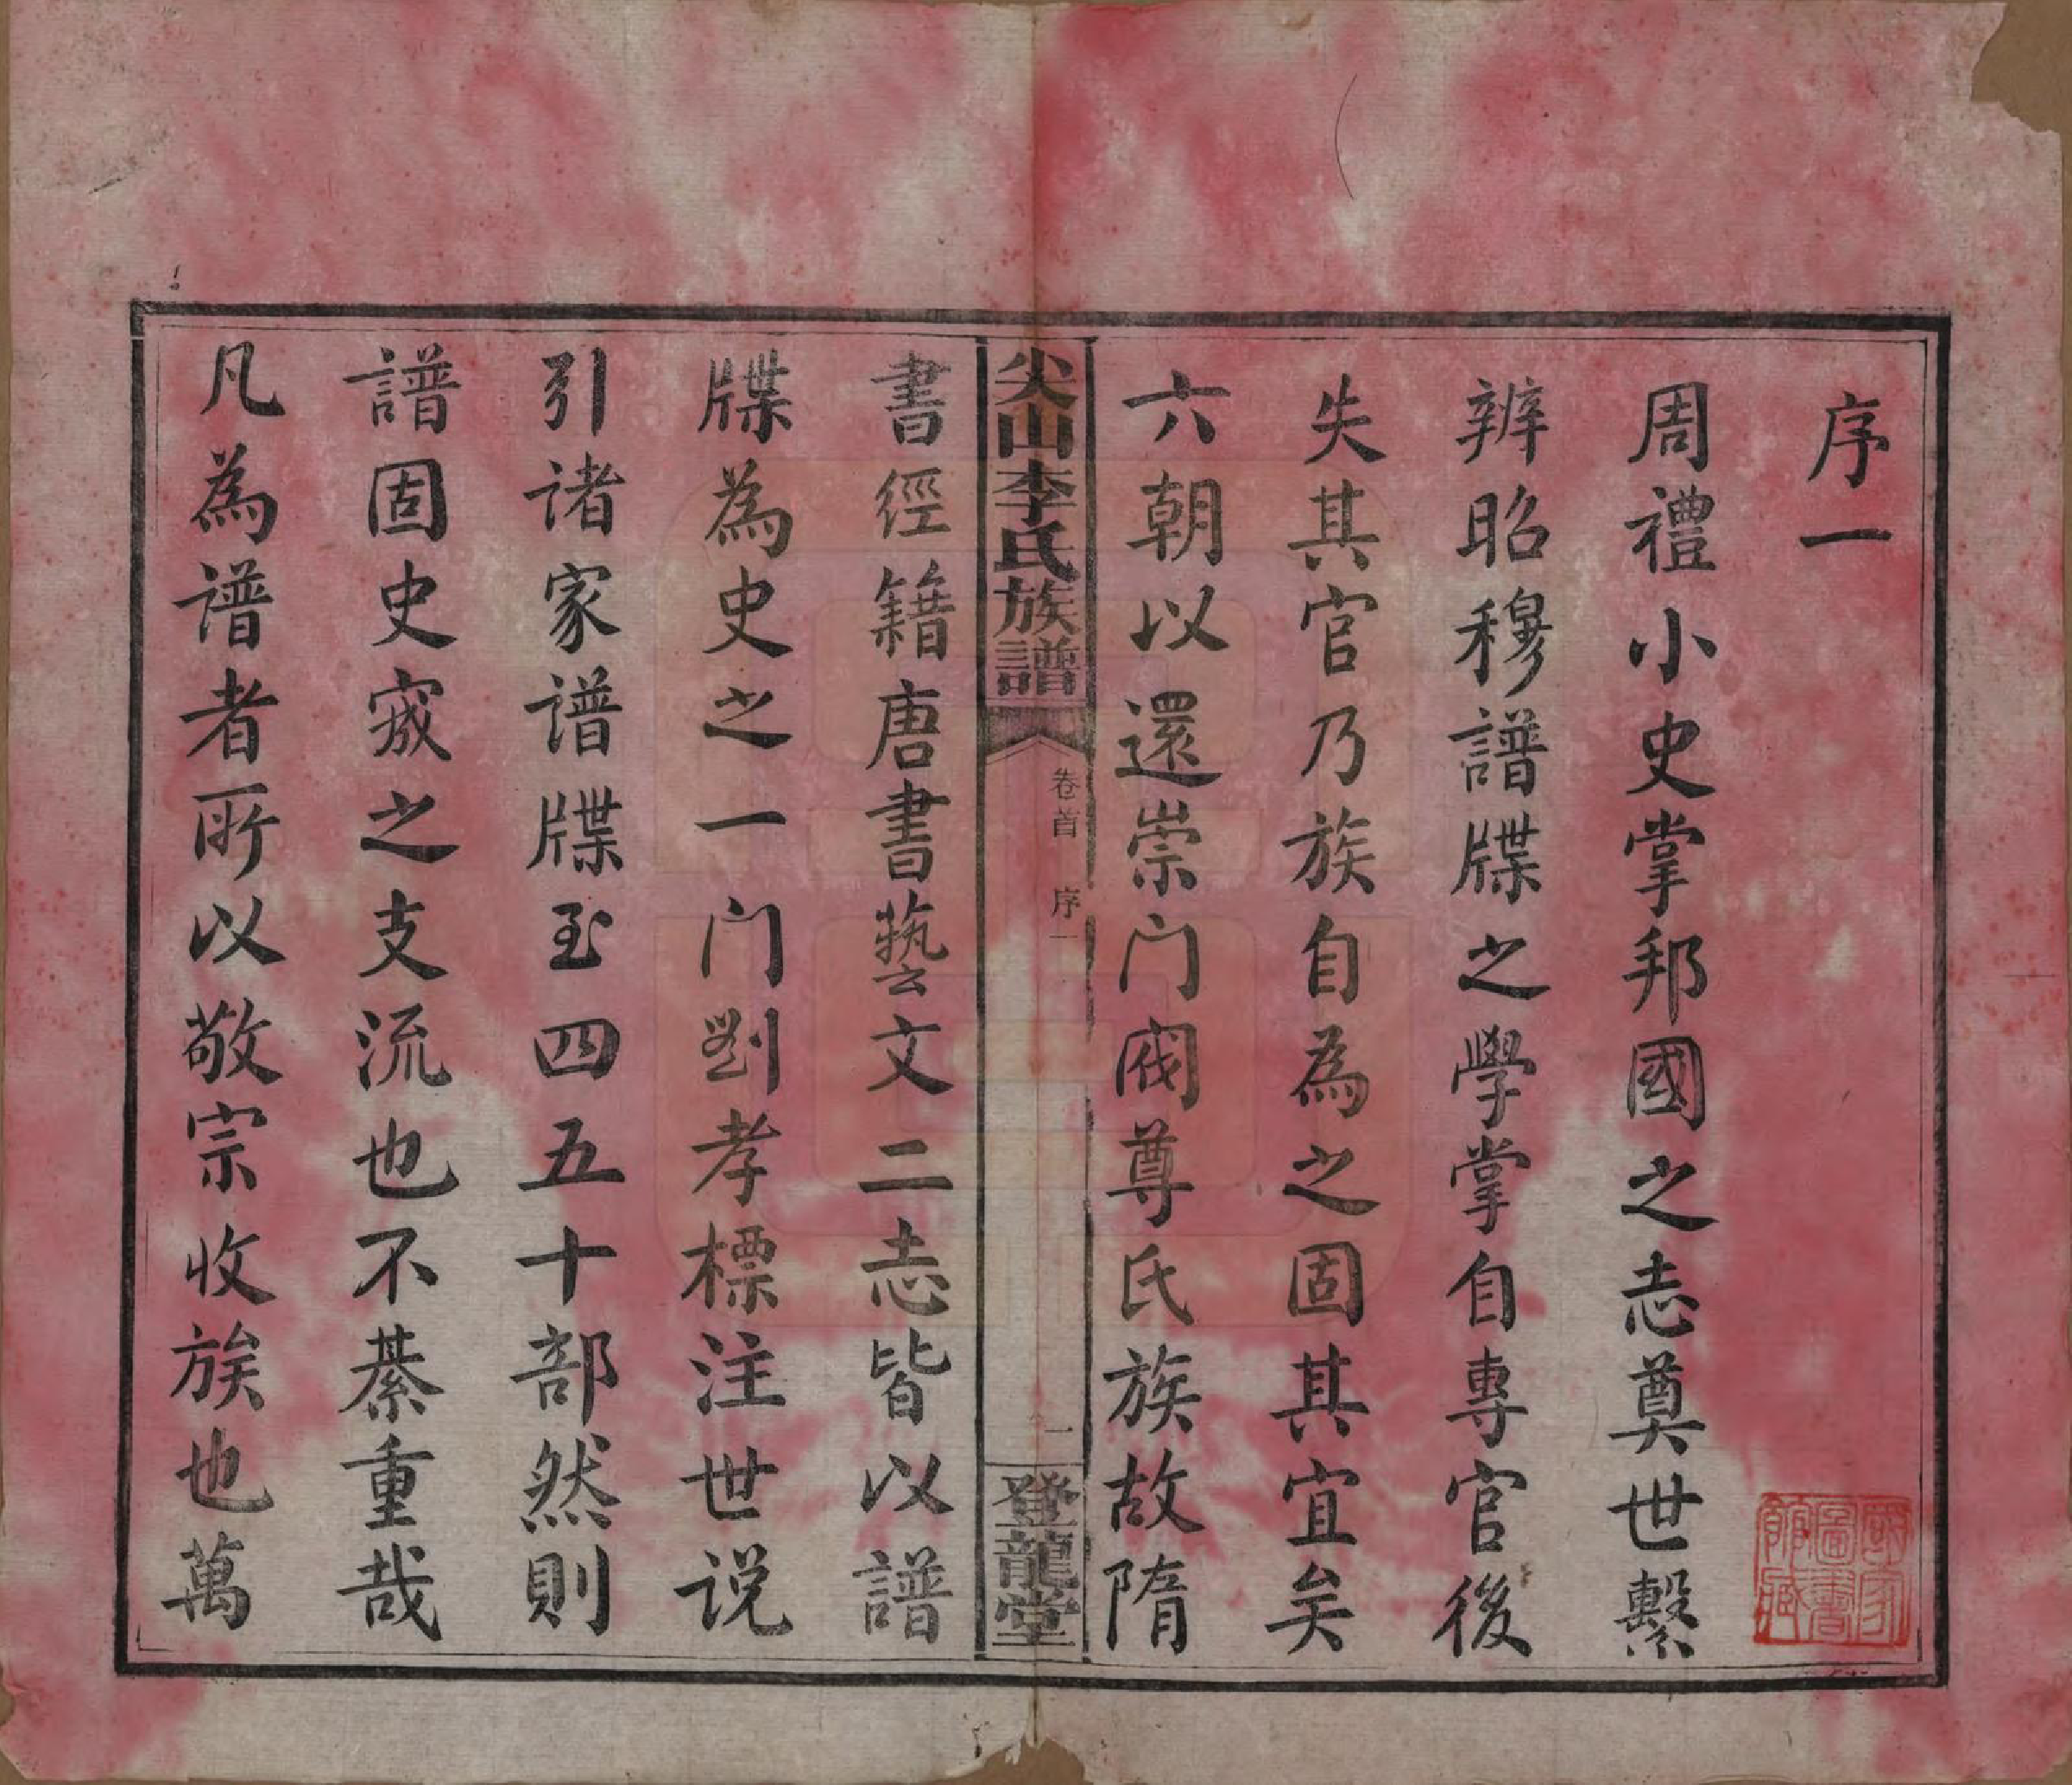 序一
周禮小史掌邦國之志奠世繫
辨昭穆譜牒之學掌自專官後
失其官乃族自為之固其宜矣
六朝以還崇门阀尊氏族故隋
尖山李氏族譜
卷首 序一
一
登龍堂
書經籍唐書藝文二志皆以譜
牒為史之一门劉孝標注世说
引诸家谱牒至四五十部然則
譜固史宬之支流也不綦重哉
凡為谱者所以敬宗收族也萬
國家圖書館藏